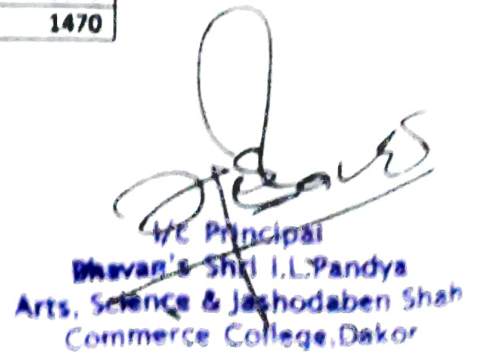 1470
I/C Principal
Bhavan's Shri I.L.Pandya
Arts, Science & Jashodaben Shah
Commerce College,Dakor